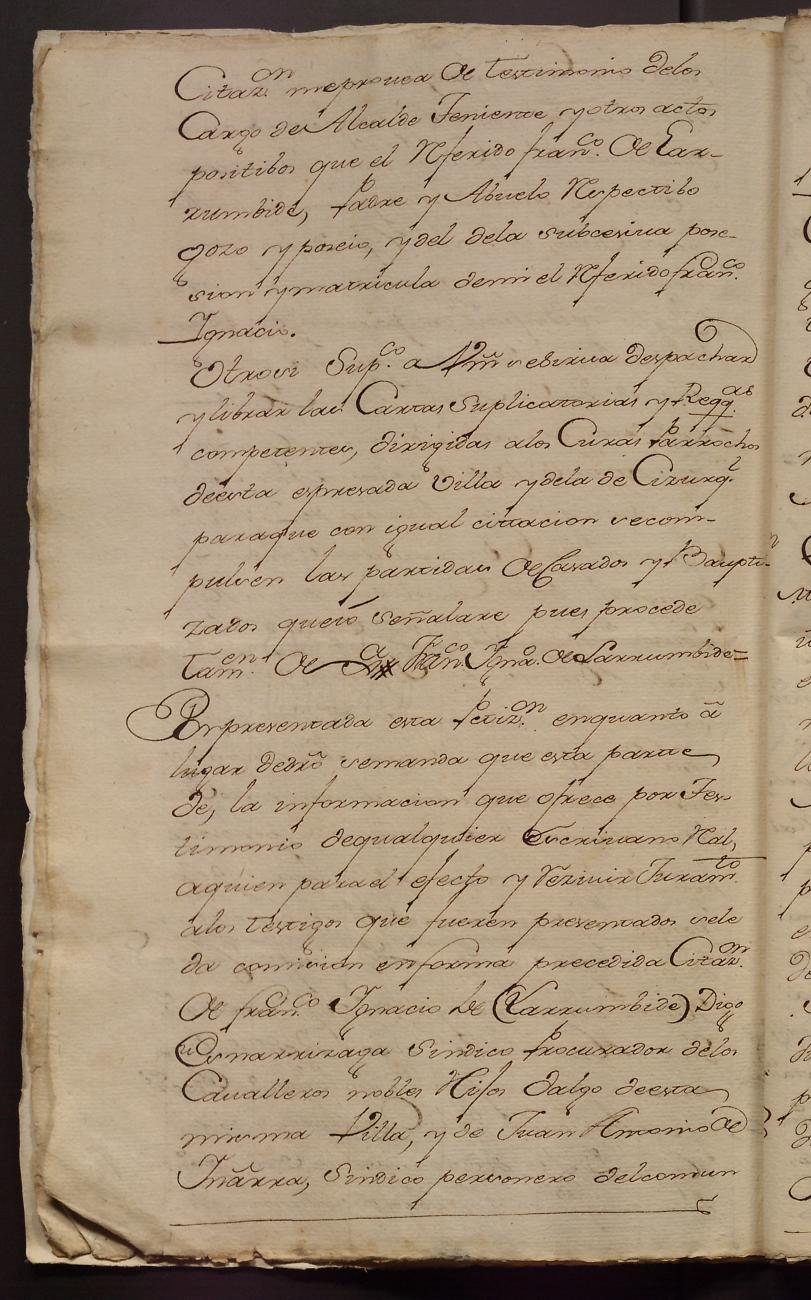 Citaz.on meprovea de testimonio delos
Cargo de Alcalde Teniente y otros actos
positibos que el Rferido fran.co de Lar-
rumbide, Padre y Abuelo Respectibo
gozo y poseio, y del dela subcesiua pose-
sion y matricula demi el Rferido fran.co
Ignacio.
Otrosi Sup.co a Vm̃ se sirua despachar
y librar las Cartas Suplicatorias y Reqq.as
competentes, dirigidas alos Curas Parrochos
deesta espresada Villa y dela de Cizurq.l
paraque con igual cittacion secom-
pulsen las partidas de Casados y Baupti-
zados que ió señalare pues procede
tam.en de Fran.co Igna.o de Larrumbide=
Enpresentada esta Petiz.on enquanto â
lugar dedr̃o semanda que esta parte
dé, la informacion que ofrece por Tes-
timonio dequalquier Escriuano Ral,
aquien para el efecto y Reziuir Juram.to
alos testigos que fueren presentados sele
da comision en forma precedida Citaz.on
de fran.co Ignacio de (Larrumbide) Digo
Umarrizaga Sindico Procurador delos
Caualleros nobles Hijos dalgo deesta
misma Villa, y de Juan Antonio de
Inârra, Sindico personero delcomun